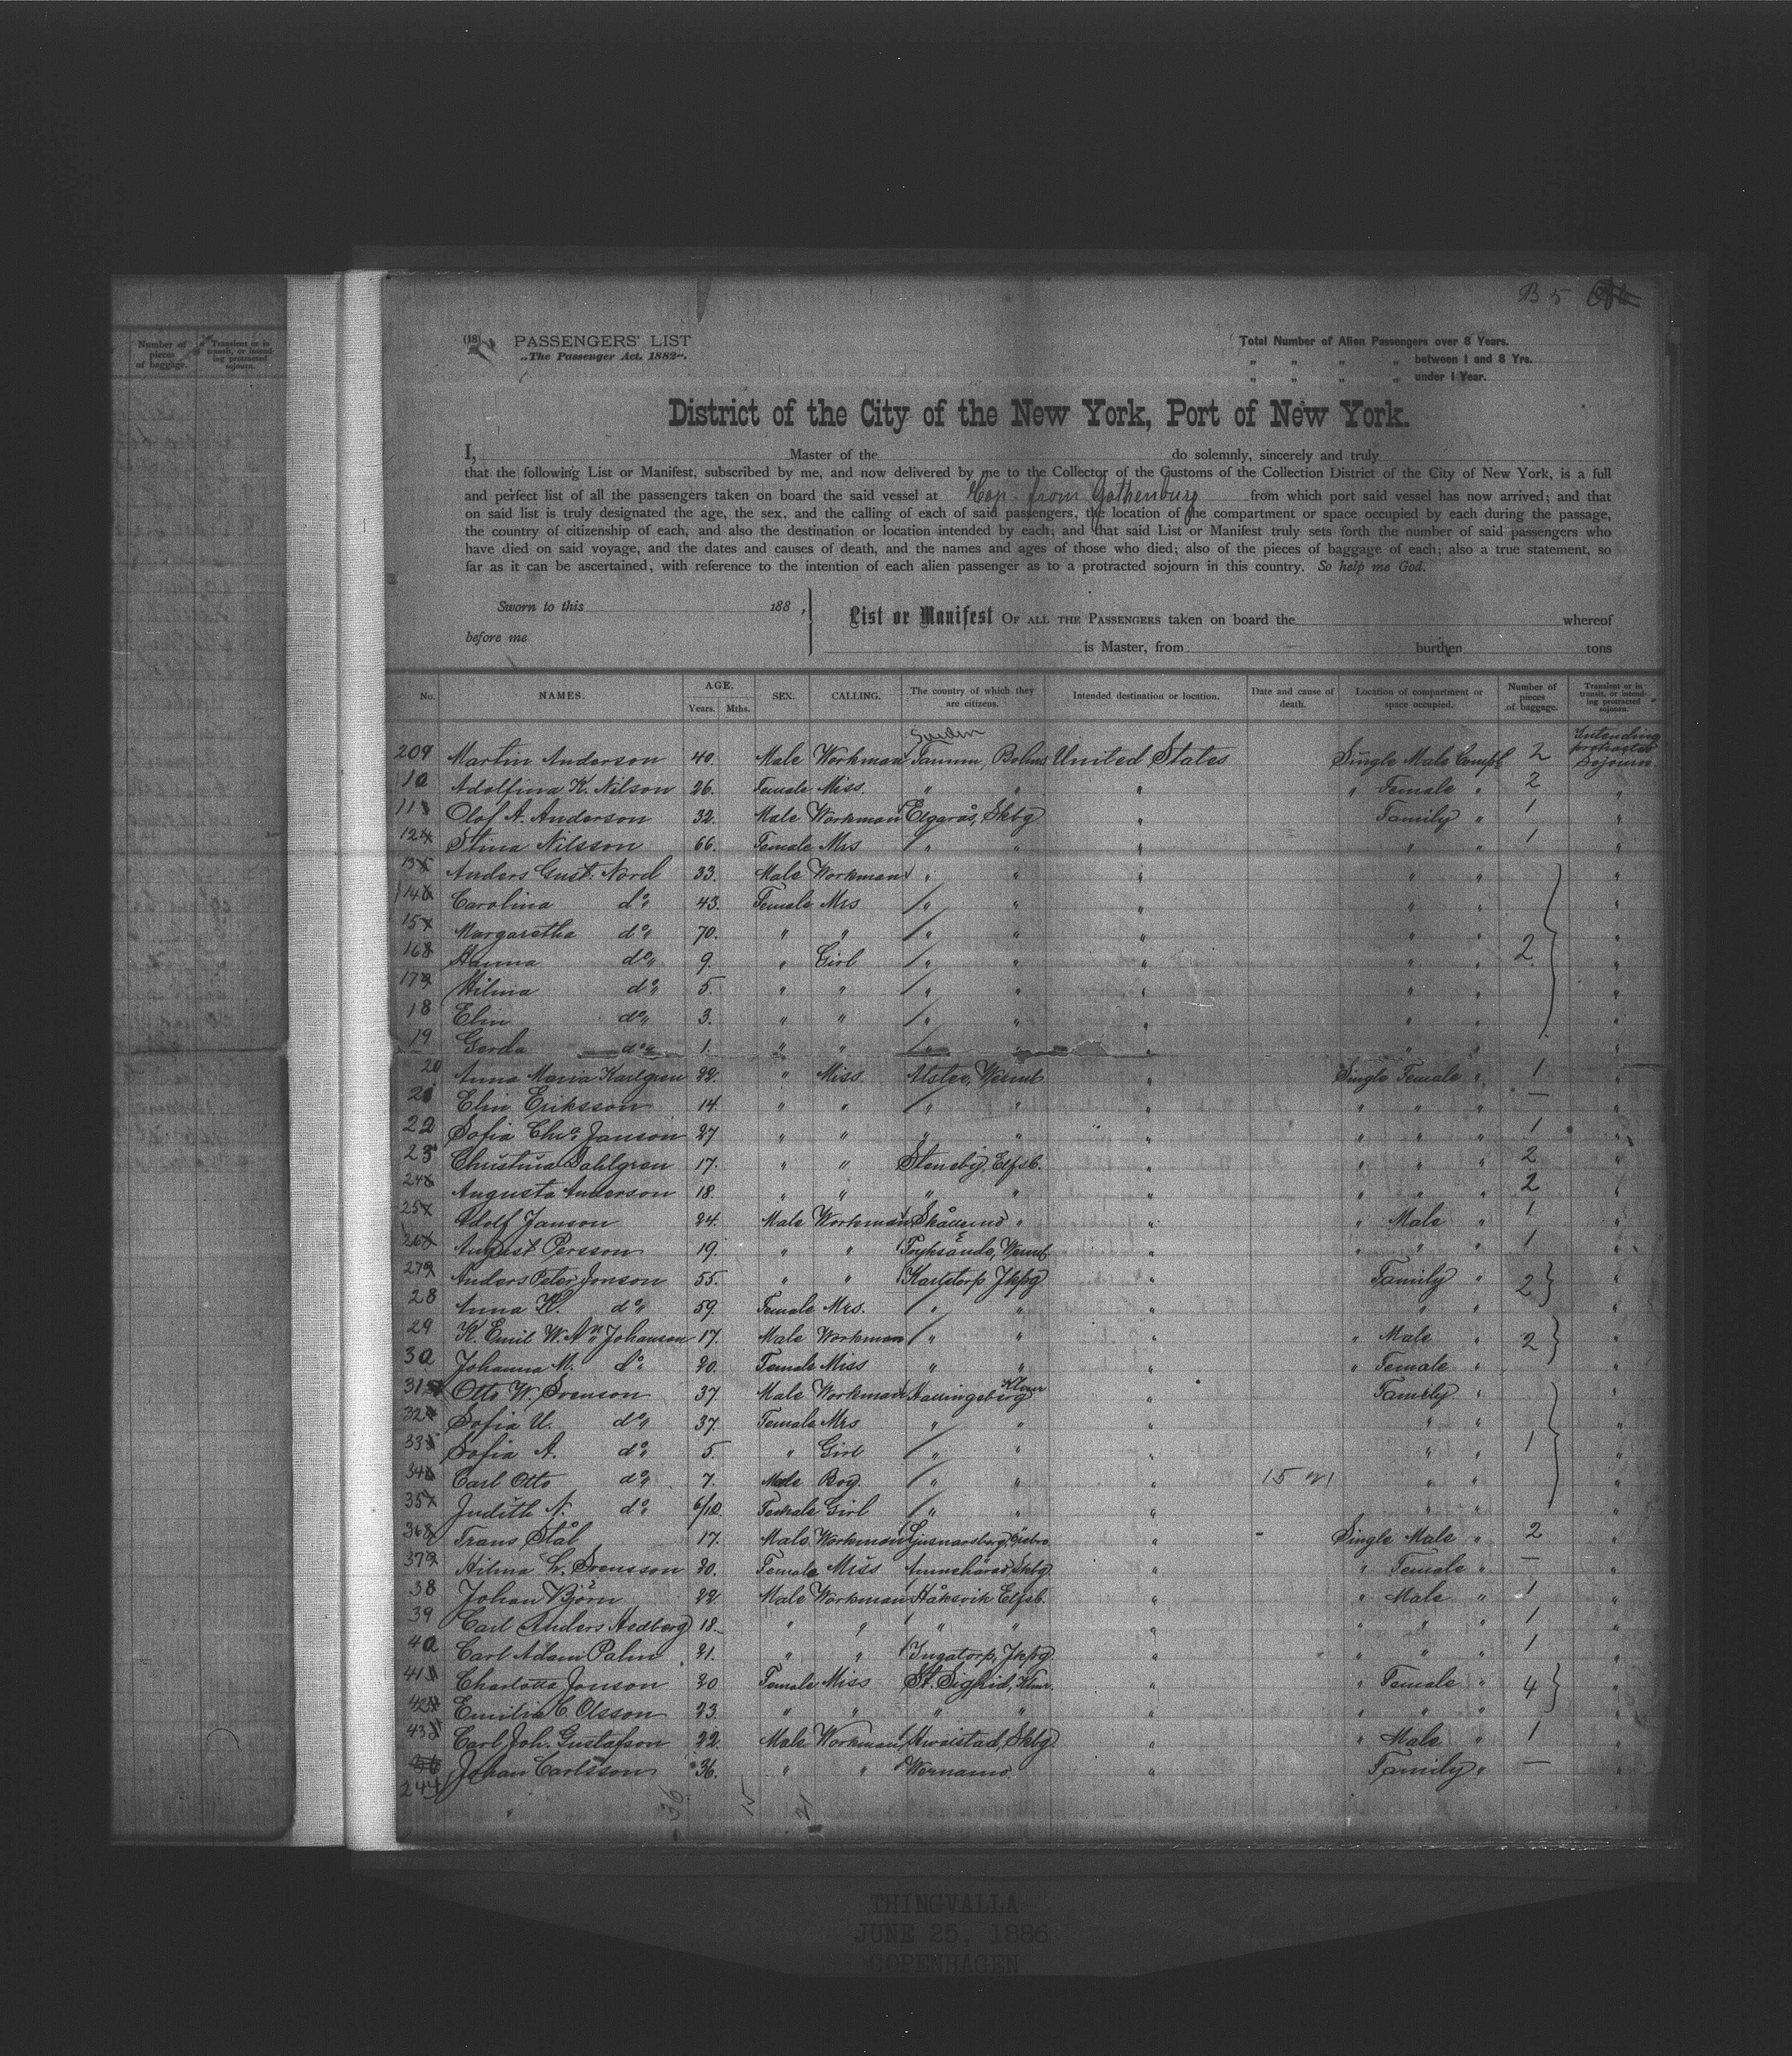 B 5
Number of pieces of baggage.
Transient or in transit, or intending protracted sojourn.
(18)
PASSENGERS' LIST
„The Passenger Act, 1882".
Total Number of Alien Passengers over 8 Years.
„ „ „ „ between 1 and 8 Yrs.
„ „ „ „ under 1 Year.
District of the City of the New York, Port of New York.
I, Master of the do solemnly, sincerely and truly
that the following List or Manifest, subscribed by me, and now delivered by me to the Collector of the Customs of the Collection District of the City of New York, is a full
and perfect list of all the passengers taken on board the said vessel at Cop. from Gothenburg from which port said vessel has now arrived; and that
on said list is truly designated the age, the sex, and the calling of each of said passengers, the location of the compartment or space occupied by each during the passage,
the country of citizenship of each, and also the destination or location intended by each; and that said List or Manifest truly sets forth the number of said passengers who
have died on said voyage, and the dates and causes of death, and the names and ages of those who died; also of the pieces of baggage of each; also a true statement, so
far as it can be ascertained, with reference to the intention of each alien passenger as to a protracted sojourn in this country. So help me God.
Sworn to this 188 ,
before me
List or Manifest OF ALL THE PASSENGERS taken on board the whereof
is Master, from burthen tons
No. NAMES. AGE. Years. Mths. SEX. CALLING. The country of which they are citizens. Intended destination or location. Date and cause of death. Location of compartment or space occupied. Number of pieces of baggage. Transient or in transit, or intending protracted sojourn.
Sweden
209 Martin Anderson 40. Male Workman Tanum, Bohus United States Single Male Compt 2 Intending protracted Sojourn.
10 Adolfina K. Nilson 26. Female Miss. „ „ „ „ Female „ 2 „
11 Olof A. Anderson 32. Male Workman Elgarås, Skbg „ Family „ 1 „
12 Stina Nilsson 66. Female Mrs „ „ „ „ „ 1 „
13 Anders Gust. Nord 33. Male Workman „ „ „ „ „ „
14 Carolina do 43. Female Mrs „ „ „ „ „ „
15 Margaretha do 70. „ „ „ „ „ „ „ „
16 Hanna do 9. „ Girl „ „ „ „ „ 2 „
17 Hilma do 5. „ „ „ „ „ „ „ „
18 Elin do 3. „ „ „ „ „ „ „ „
19 Gerda do 1. „ „ „ „ „ „ „ „
20 Anna Maria Karlgren 22. „ Miss Alster, Werml. „ Single Female „ 1 „
21 Elin Eriksson 14 „ „ „ „ „ „ „ „ — „
22 Sofia Cha. Janson 27 „ „ „ „ „ „ „ „ 1 „
23 Christina Dahlgren 17. „ „ Steneby, Elfsb. „ „ „ „ 2 „
24 Augusta Anderson 18. „ „ „ „ „ „ „ „ 2 „
25 Adolf Janson 24. Male Workman „ „ „ Male „ 1 „
26 August Persson 19. „ „ Fryksände, Werml. „ „ „ „ 1 „
27 Anders Peter Jonson 55. „ „ Karlstorp Jkpg „ Family „ 2 „
28 Anna K. do 59. Female Mrs. „ „ „ „ „ „
29 K. Emil W. An. Johanson 17. Male Workman „ „ „ „ Male „ 2 „
30 Johanna M. do 20. Female Miss „ „ „ „ Female „ „
31 Otto W. Svenson 37. Male Workman Hallingeberg Klmr „ Family „
32 Sofia U. do 37. Female Mrs „ „ „ „ „ „
33 Sofia A. do 5 „ Girl „ „ „ „ „ 1 „
34 Carl Otto do 7. Male Boy. „ „ „ „ „ „
35 Judith N. do 6/12. Female Girl „ „ „ „ „ „
36 Frans Stål 17. Male Workman Ljusnarsberg, Örebro „ Single Male „ 2 „
37 Hilma L. Svensson 20. Female Miss Amnehärad Skbg „ „ Female „ — „
38 Johan Björn 22. Male Workman Håksvik Elfsb. „ „ Male „ 1 „
39 Carl Anders Hedberg 18. „ „ „ „ „ „ „ „ 1 „
40 Carl Adam Palm 21. „ „ Ingatorp, Jkpg „ „ „ „ 1 „
41 Charlotta Jonson 20 Female Miss St. Sigfrid, Klmr. „ „ Female „ 4 „
42 Emilia C. Olsson 23. „ „ „ „ „ „ „ „ „
43 Carl Joh. Gustafson 22. Male Workman „ „ Male „ 1 „
244 Johan Carlsson 36. „ „ Wernamo „ Family „ —
36 15 21
THINGVALLA
JUNE 25, 1886
COPENHAGEN